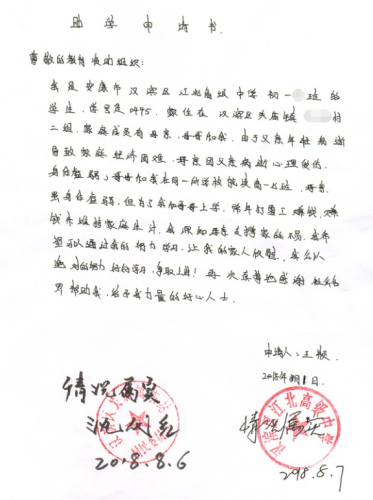 助学申请书
尊敬的教育资助组织:
我是安康市汉滨区江北高级中学初一 班的
学生, 学号是0445, 家住在汉滨区关庙镇 村
二组, 家庭成员有母亲, 哥哥和我, 由于父亲年 病逝
导致家庭经济困难, 母亲因父亲病逝心理 ,
身体虚弱, 哥哥和我在同一所学校 高一 班, 母亲
虽身体虚弱, 但为了我和哥哥上学, 常年打零工赚钱, 赚
钱来维持家庭生计, 我深知母亲支撑家的不易, 我希
望可以通过我的努力学习, 让我的家人欣慰, 我会以
绝对的努力好好学习, 争取上游! 再一次真挚地感谢社会各
界帮助我, 给予我力量的好心人士。
申请人:王
2018年8月1日.
情况属实
2018.8.6
情况属实
2018.8.7
江北高级中